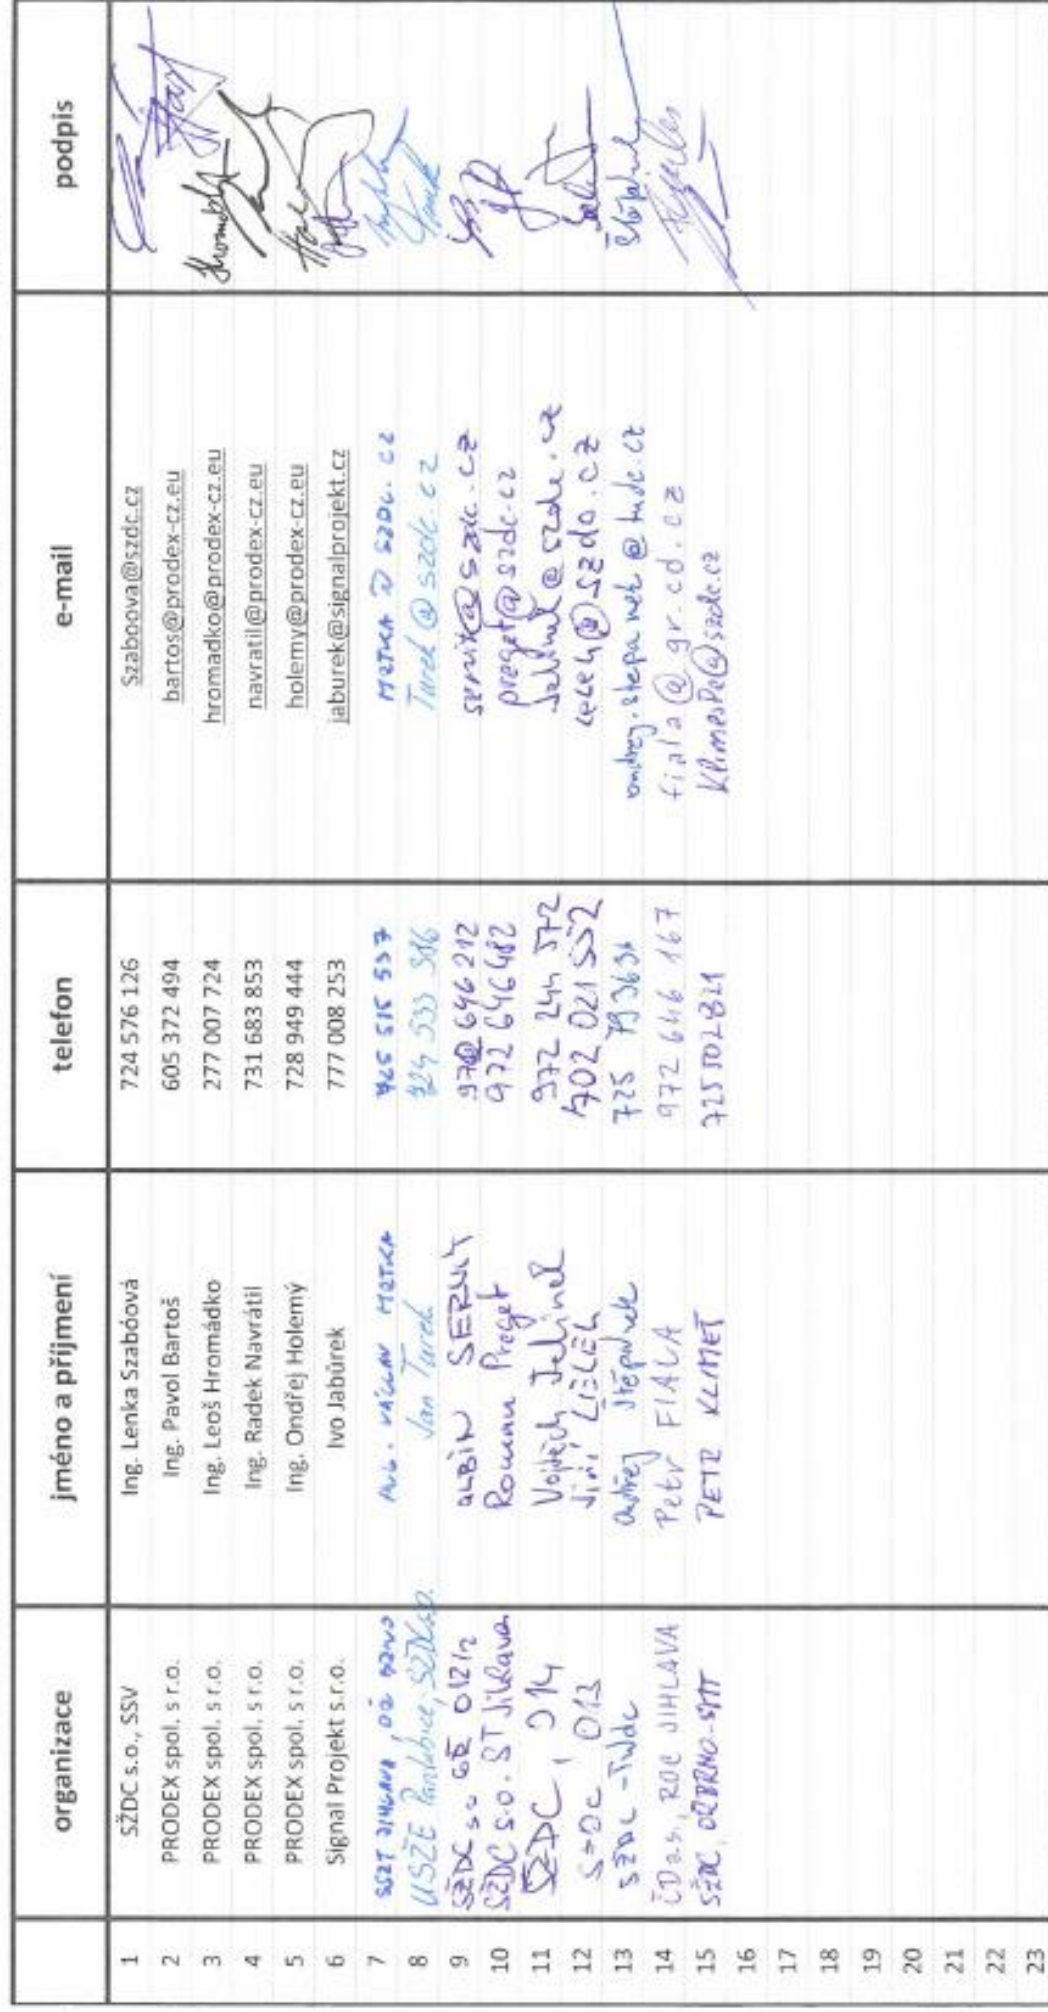 organizace jméno a příjmení telefon e-mail podpis
1 SŽDC s.o., SSV Ing. Lenka Szabóová 724 576 126 Szaboova@szdc.cz
2 PRODEX spol. s r.o. Ing. Pavol Bartoš 605 372 494 bartos@prodex-cz.eu
3 PRODEX spol. s r.o. Ing. Leoš Hromádko 277 007 724 hromadko@prodex-cz.eu
4 PRODEX spol. s r.o. Ing. Radek Navrátil 731 683 853 navratil@prodex-cz.eu
5 PRODEX spol. s r.o. Ing. Ondřej Holemý 728 949 444 holemy@prodex-cz.eu
6 Signal Projekt s.r.o. Ivo Jabůrek 777 008 253 jaburek@signalprojekt.cz
7 SSZT JIHLAVA, OŘ BRNO ING. VÁCLAV 725 515 537
8 Jan Turek 724 533 316 Turek@szdc.cz Turek
9 SŽDC s.o. ALBÍN SERVÍT
10 SŽDC s.o. ST Jihlava Roman Preget 972 646 482 preget@szdc.cz
11 SŽDC, O14 Vojtěch Jelínek 972 244 572
12 O13 Jiří 702 021 552
13 SŽDC - Ondřej Štěpánek 725
14 ČD a.s., ROC JIHLAVA Petr FIALA 972 646 167 fiala@gr.cd.cz
15 SŽDC, OŘ BRNO- PETR KLIMEŠ 725 502 821 KlimesPe@szdc.cz
16
17
18
19
20
21
22
23